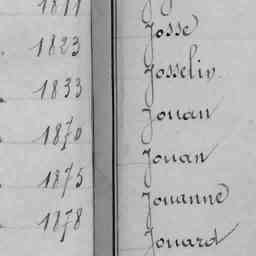 1811 Josse
1823 Josselin
1833 Jouan
1870 Jouan
1875 Jouanne
1878 Jouard